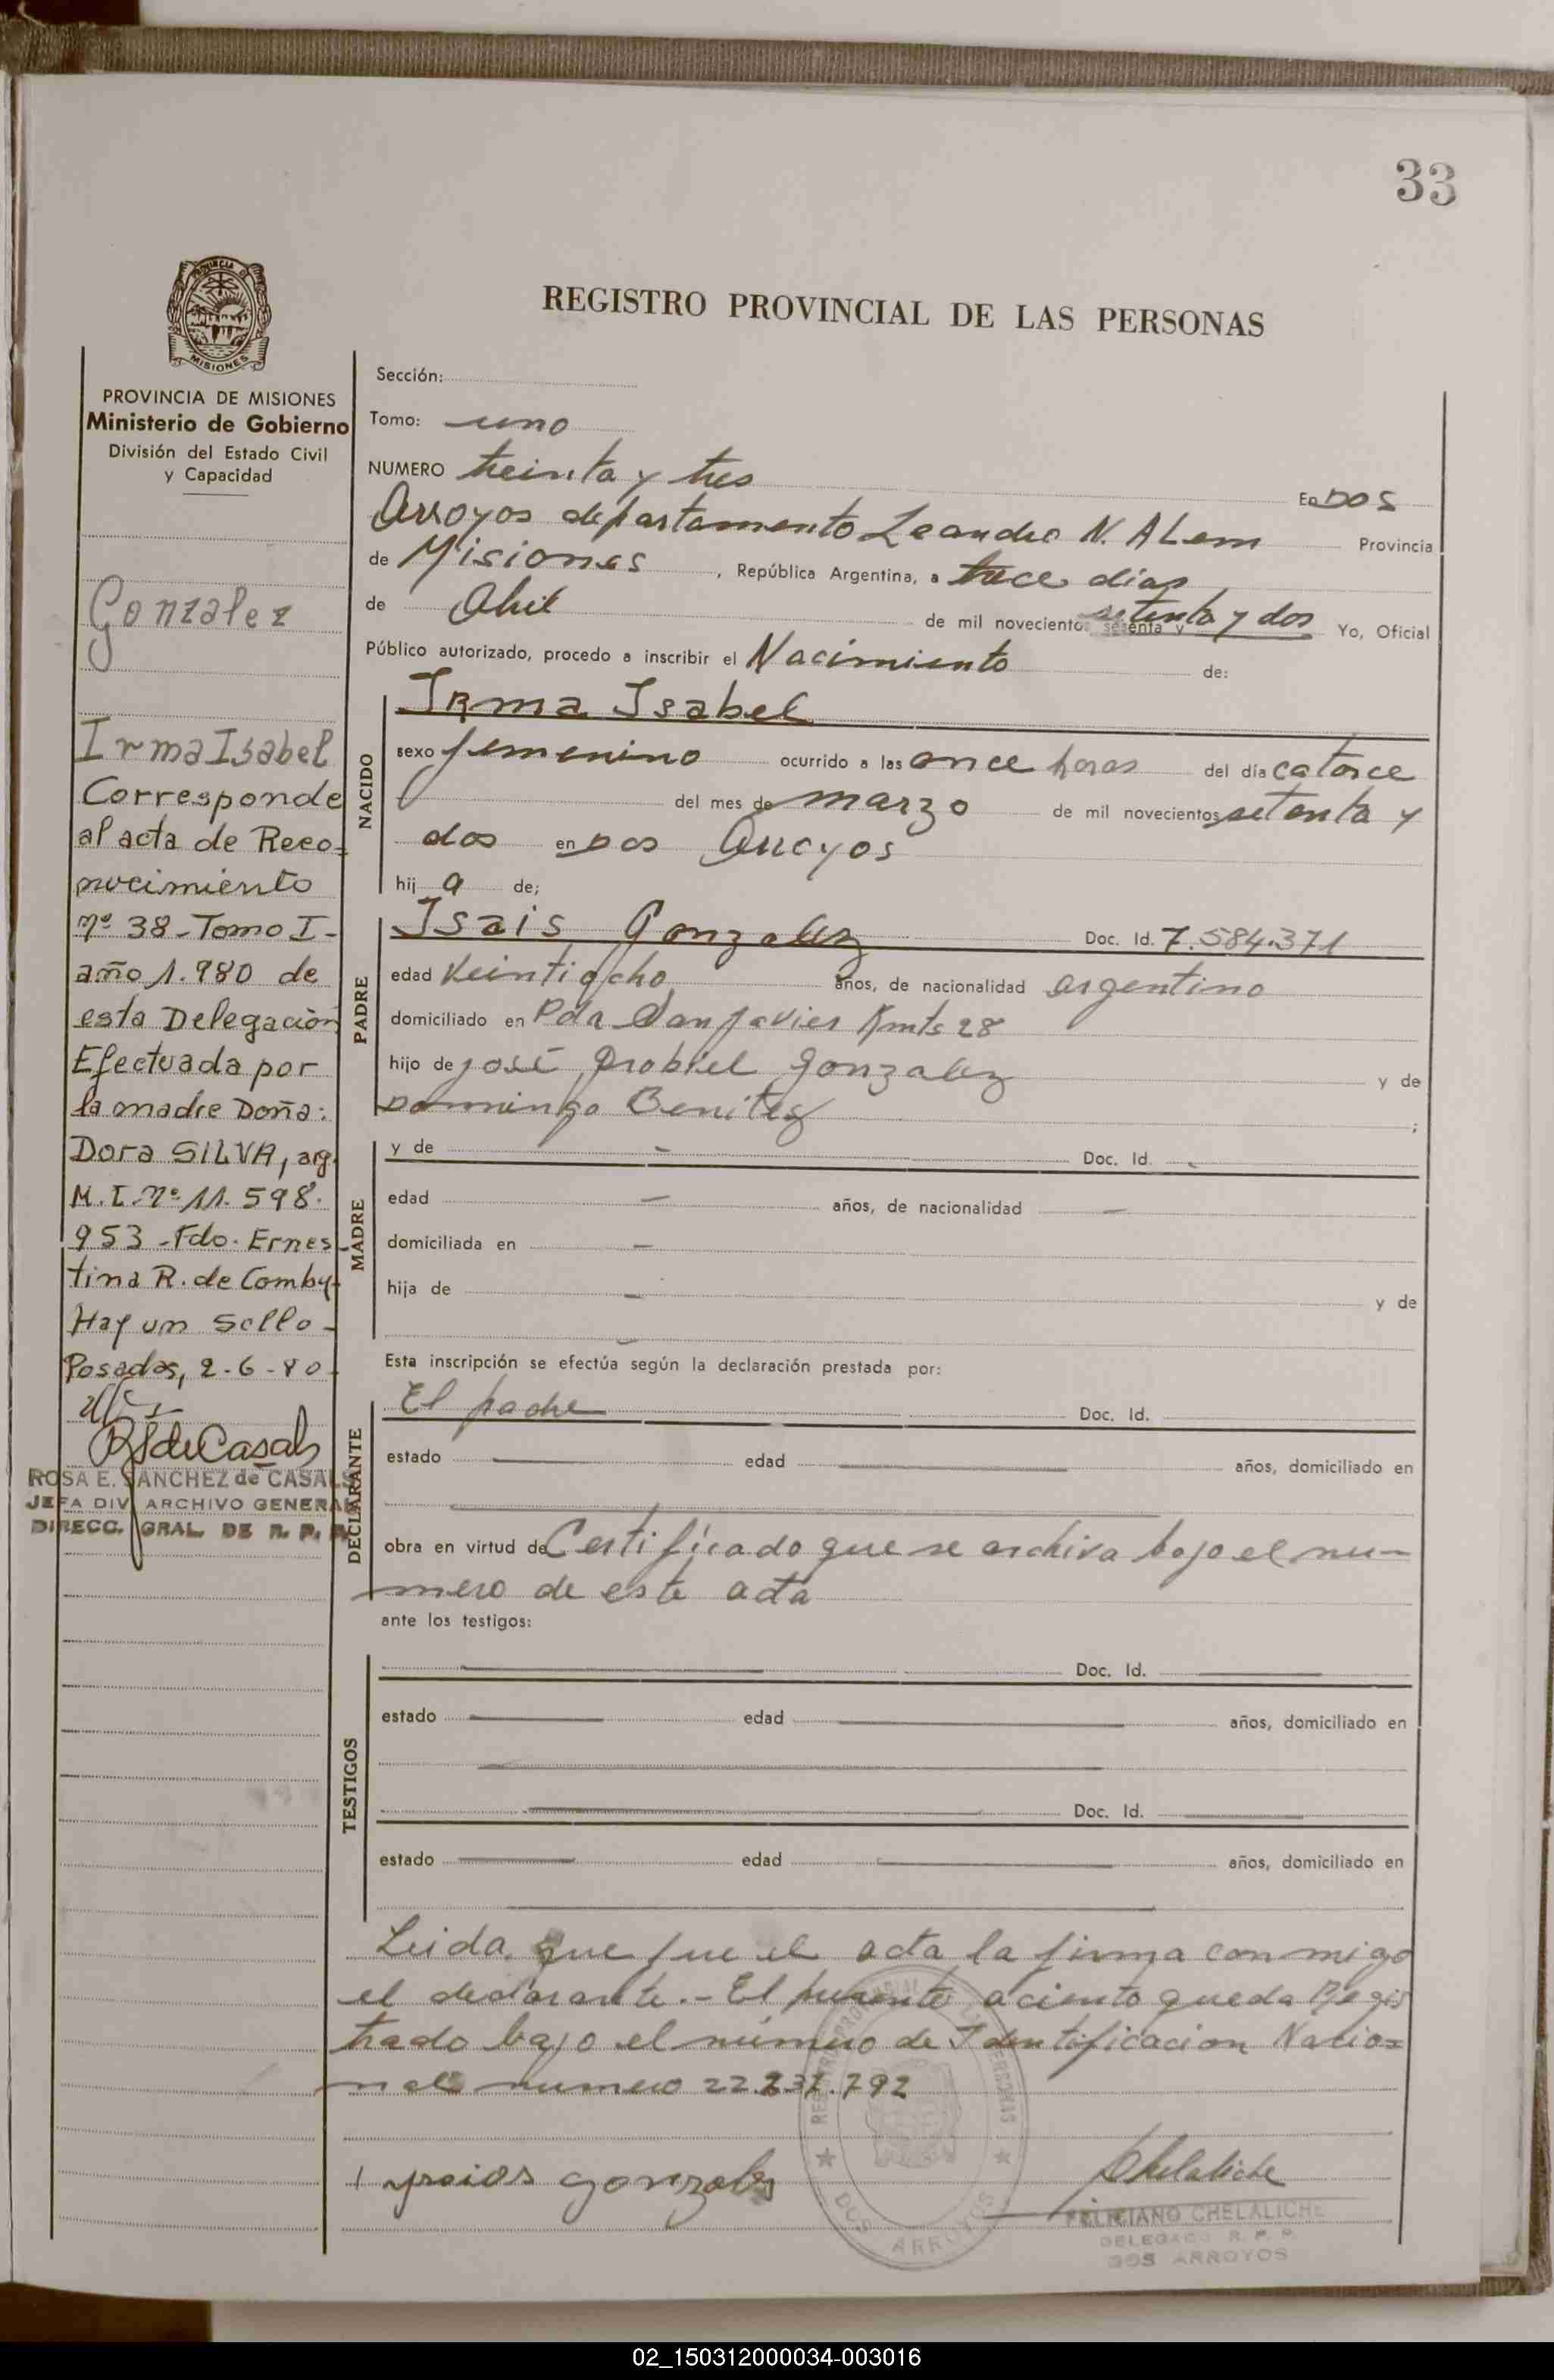 33
REGISTRO PROVINCIAL DE LAS PERSONAS
PROVINCIA DE MISIONES
Ministerio de Gobierno
División del Estado Civil
y Capacidad
Gonzalez
Irma Isabel
Corresponde
al acta de Reco-
nocimiento
nº 38 - Tomo I -
año 1.980 de
esta Delegación
Efectuada por
la madre Doña:
Dora SILVA, arg.
M.I. nº 11.598.
953 - Fdo. Ernes-
tina R. de Comby-
Hay un Sello -
Posadas, 2-6-80-
ROSA E. SANCHEZ de CASALS
JEFA DIV. ARCHIVO GENERAL
DIRECC. GRAL. DE R. P. P.
Sección:
Tomo: uno
NUMERO treinta y tres
En DOS
Arroyos departamento Leandro N. ALem Provincia
de Misiones, República Argentina, a trece dias
de Abril de mil novecientos setenta y dos Yo, Oficial
Público autorizado, procedo a inscribir el Nacimiento de:
NACIDO
Irma Isabel
sexo femenino ocurrido a las once horas del día catorce
del mes de marzo de mil novecientos setenta y
dos en Dos Arroyos
hij a de;
PADRE
Isais Gonzalez Doc. Id. 7.584.371
edad veintiocho años, de nacionalidad argentino
domiciliado en Pda San Javier Kmts 28
hijo de José Gonzalez y de
Benitez;
MADRE
y de - Doc. Id. -
edad - años, de nacionalidad -
domiciliada en -
hija de - y de
-
Esta inscripción se efectúa según la declaración prestada por:
DECLARANTE
El padre Doc. Id.
estado edad años, domiciliado en
obra en virtud de Certificado que se archiva bajo el nu-
mero de este acta
ante los testigos:
TESTIGOS
Doc. Id.
estado edad años, domiciliado en
Doc. Id.
estado edad años, domiciliado en
Leida que fue el acta la firma con migo
el declarante.- El presente aciento queda Regis
trado bajo el número de Identificacion Nacio=
nal numero 22.231.792
Isaias gonzalez
Chelaliche
FELICIANO CHELALICHE
DELEGADO R. P. P.
DOS ARROYOS
DOS ARROYOS
02_150312000034-003016